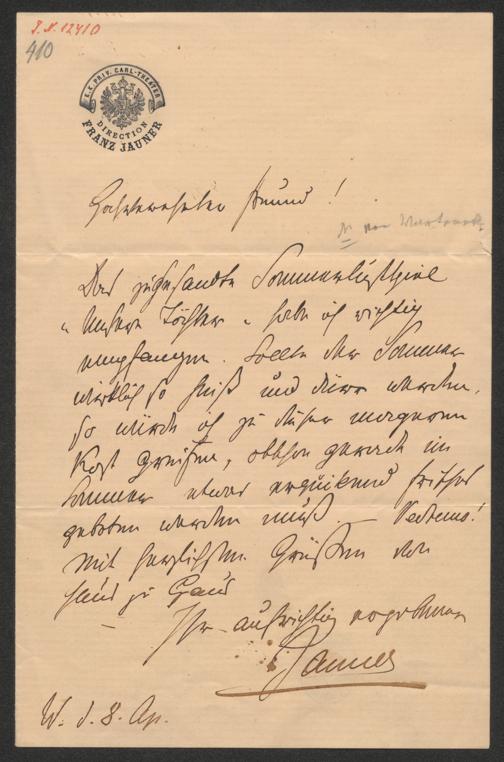 J.N. 12410
410
K.K. PRIV. CARL-THEATER
DIRECTION
FRANZ JAUNER
Hochverehrter Freund!
N von
Das zugesandte Sommerlustspiel
„Unsere Töchter" habe ich richtig
empfangen. Sollte der Sommer
wirklich so heiß und dürr werden,
so würde ich zu dieser mageren
Kost greifen, obschon gerade im
Sommer etwas erquickend frisches
geboten werden muß. – Vederemo!
Mit herzlichsten Grüßen von
Haus zu Haus
– Ihr aufrichtig ergebener
Jauner
W. d. 8. Ap.